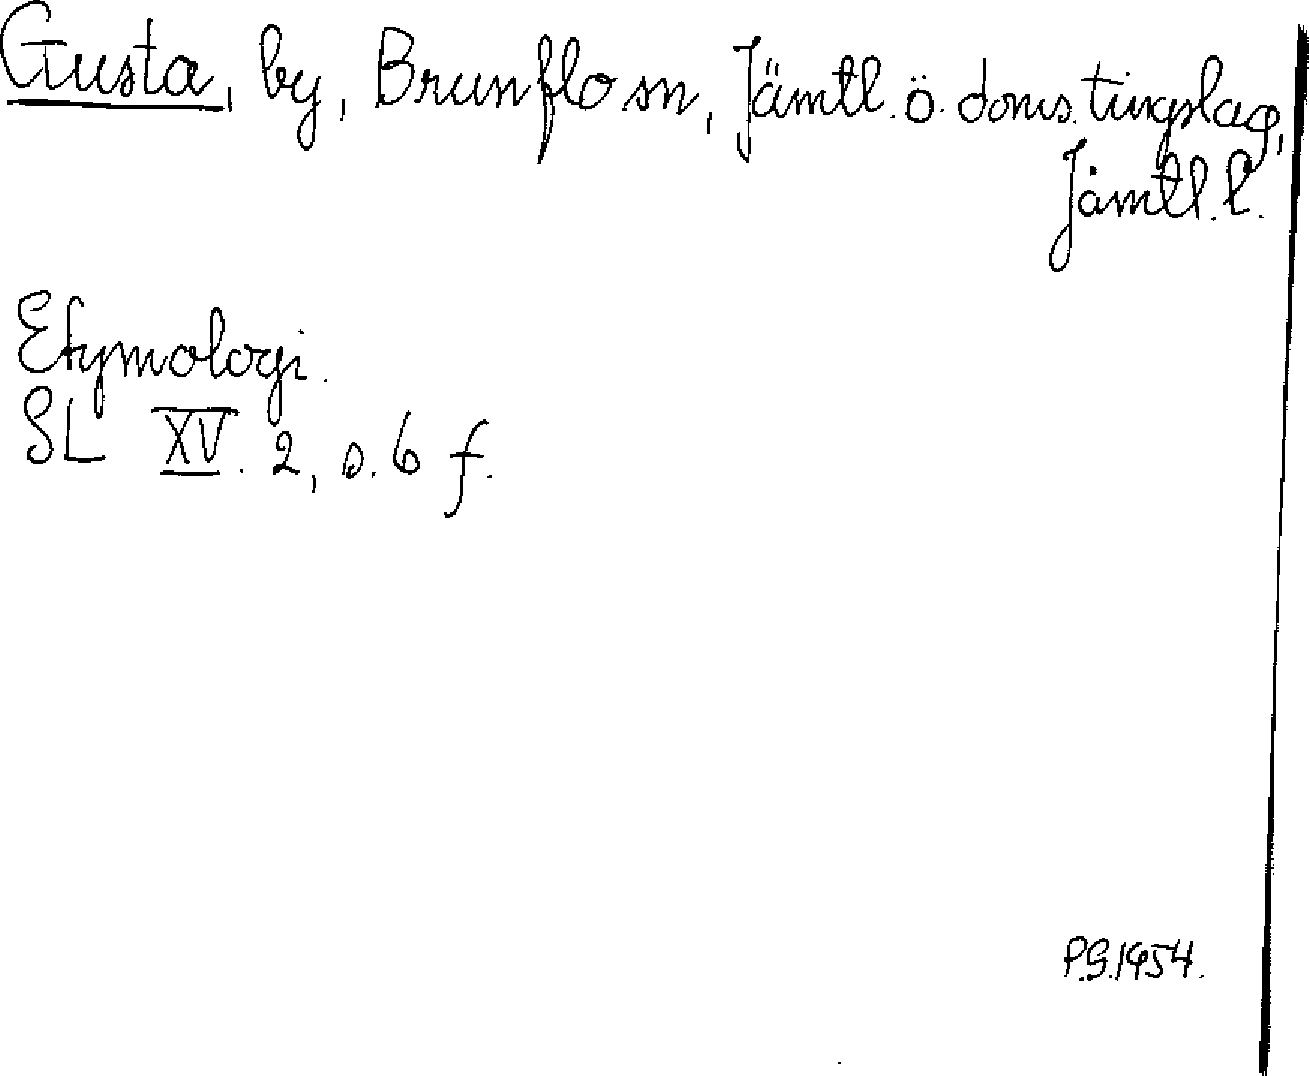 Gusta, by, Brunflo sn, Jämtl. ö. doms. tingslag,
Jämtl. l.
Etymologi.
SL XV. 2, s. 6 f.
P.G. 1954.